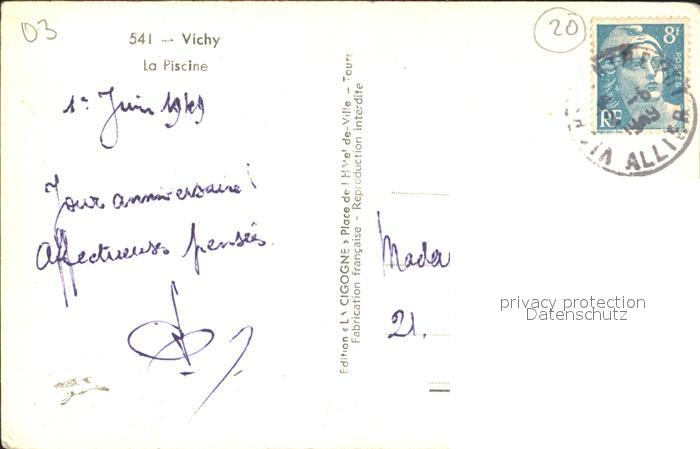 03
20
541 — Vichy
La Piscine
8f
POSTES
RF
VICHY ALLIER
1949
1er Juin 1949
Jour anniversaire!
Affectueuses pensées
Edition « LA CIGOGNE » Place de l'Hôtel de-Ville - Tours
Fabrication française - Reproduction interdite
Madam
21.
privacy protection
Datenschutz